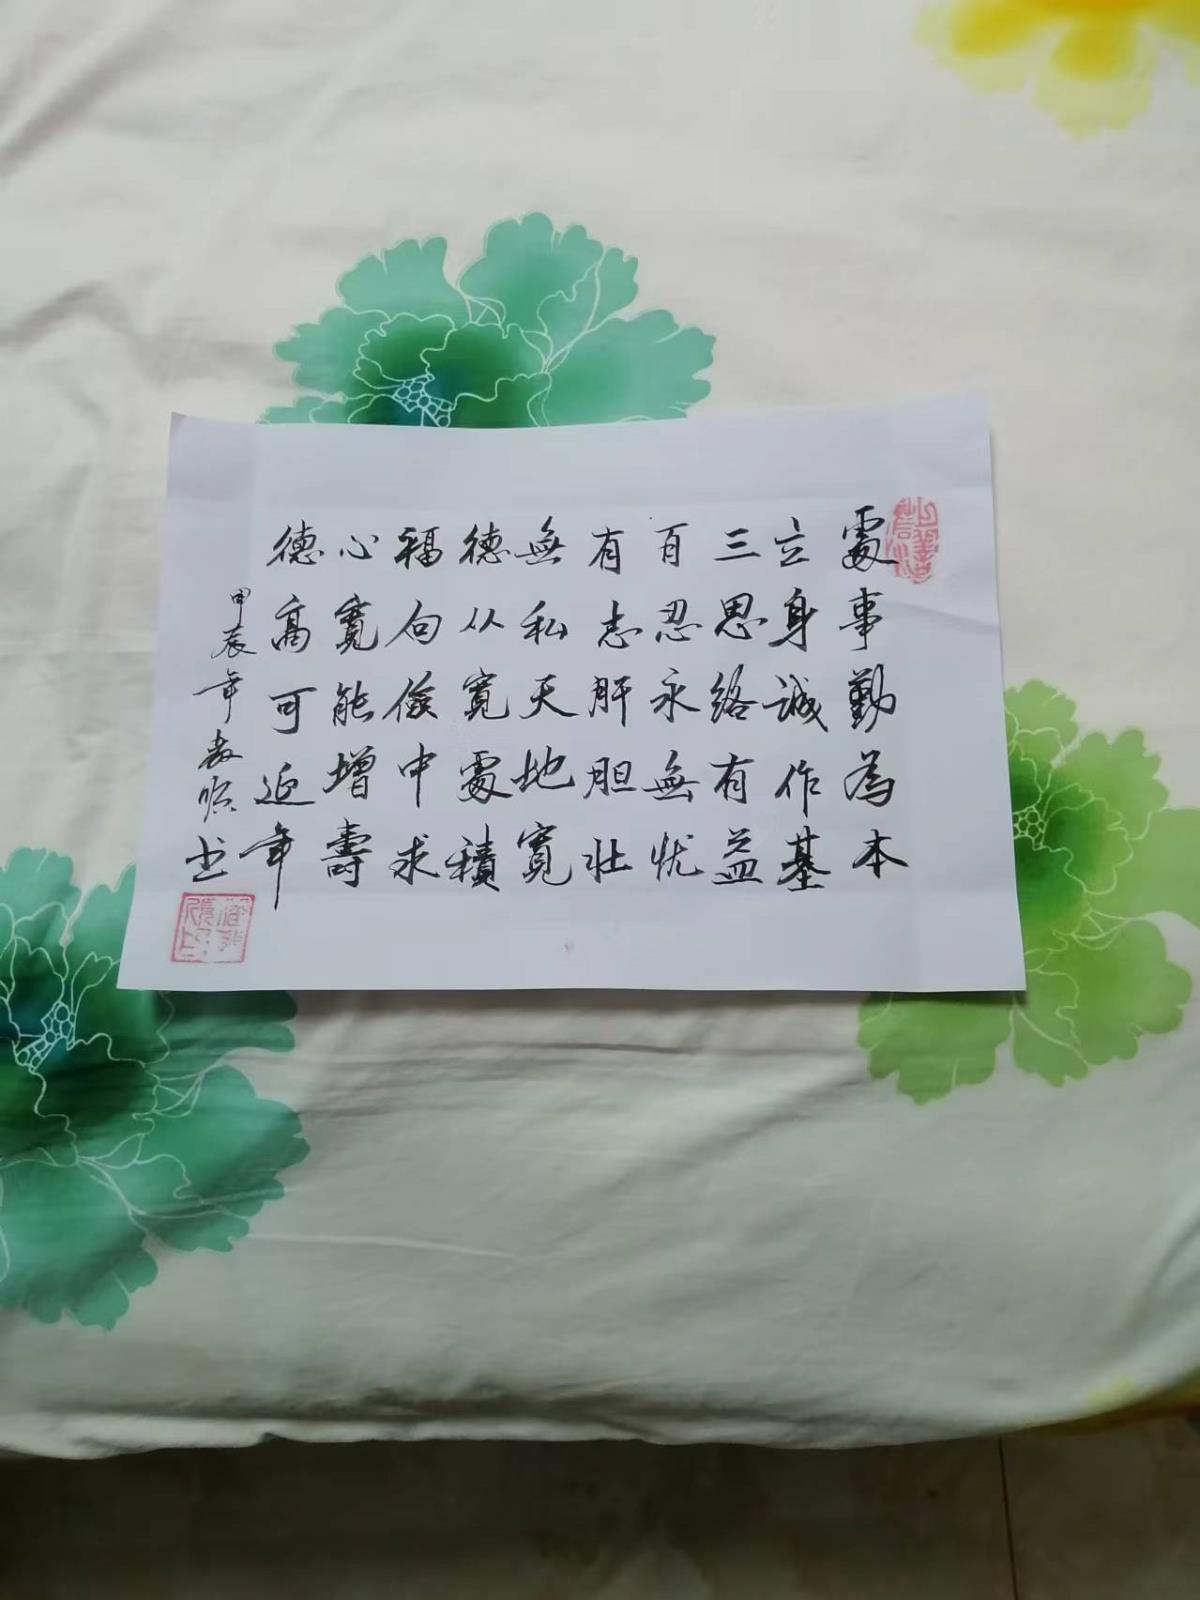 處事勤為本
立身誠作基
三思络有益
百忍永無忧
有志肝胆壮
無私天地寬
德从寬處積
福向俭中求
心寬能增壽
德高可延年
甲辰年
书